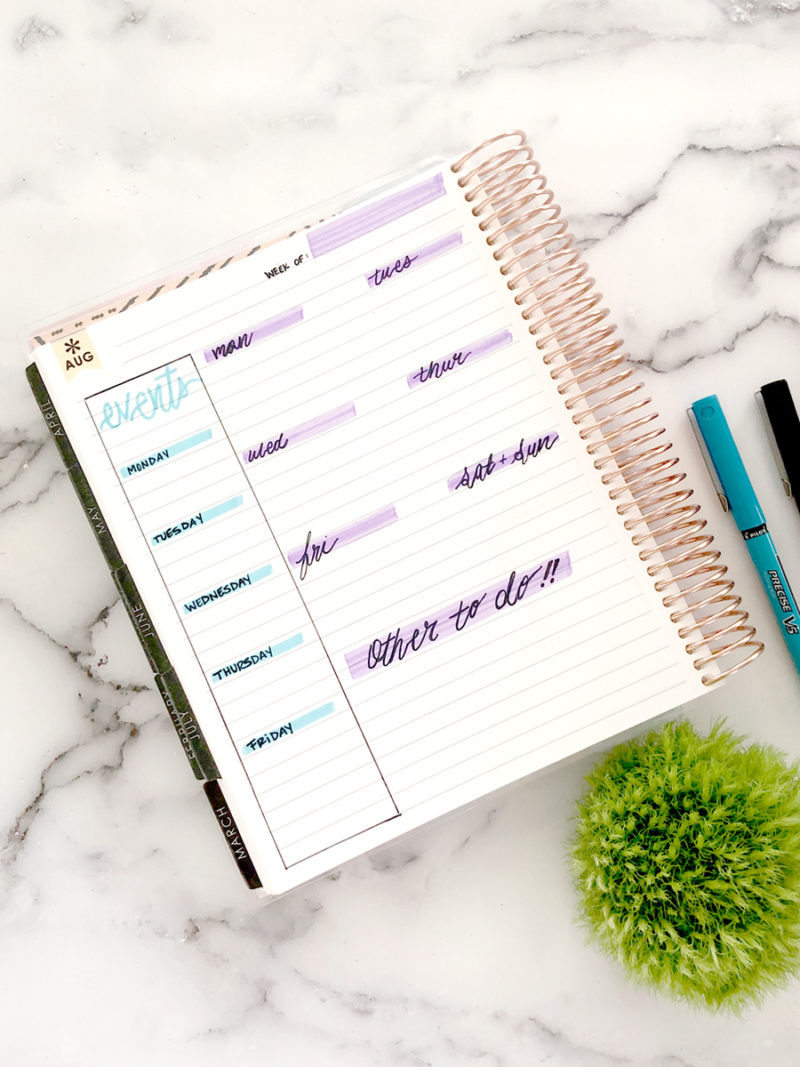 WEEK OF:
tues
mon
* AUG
thur
events
wed
MONDAY
sat + sun
TUESDAY
fri
WEDNESDAY
Other to do!!
THURSDAY
FRiDAY
APRIL
MAY
JUNE
JULY
MARCH
PILOT
PRECISE V5